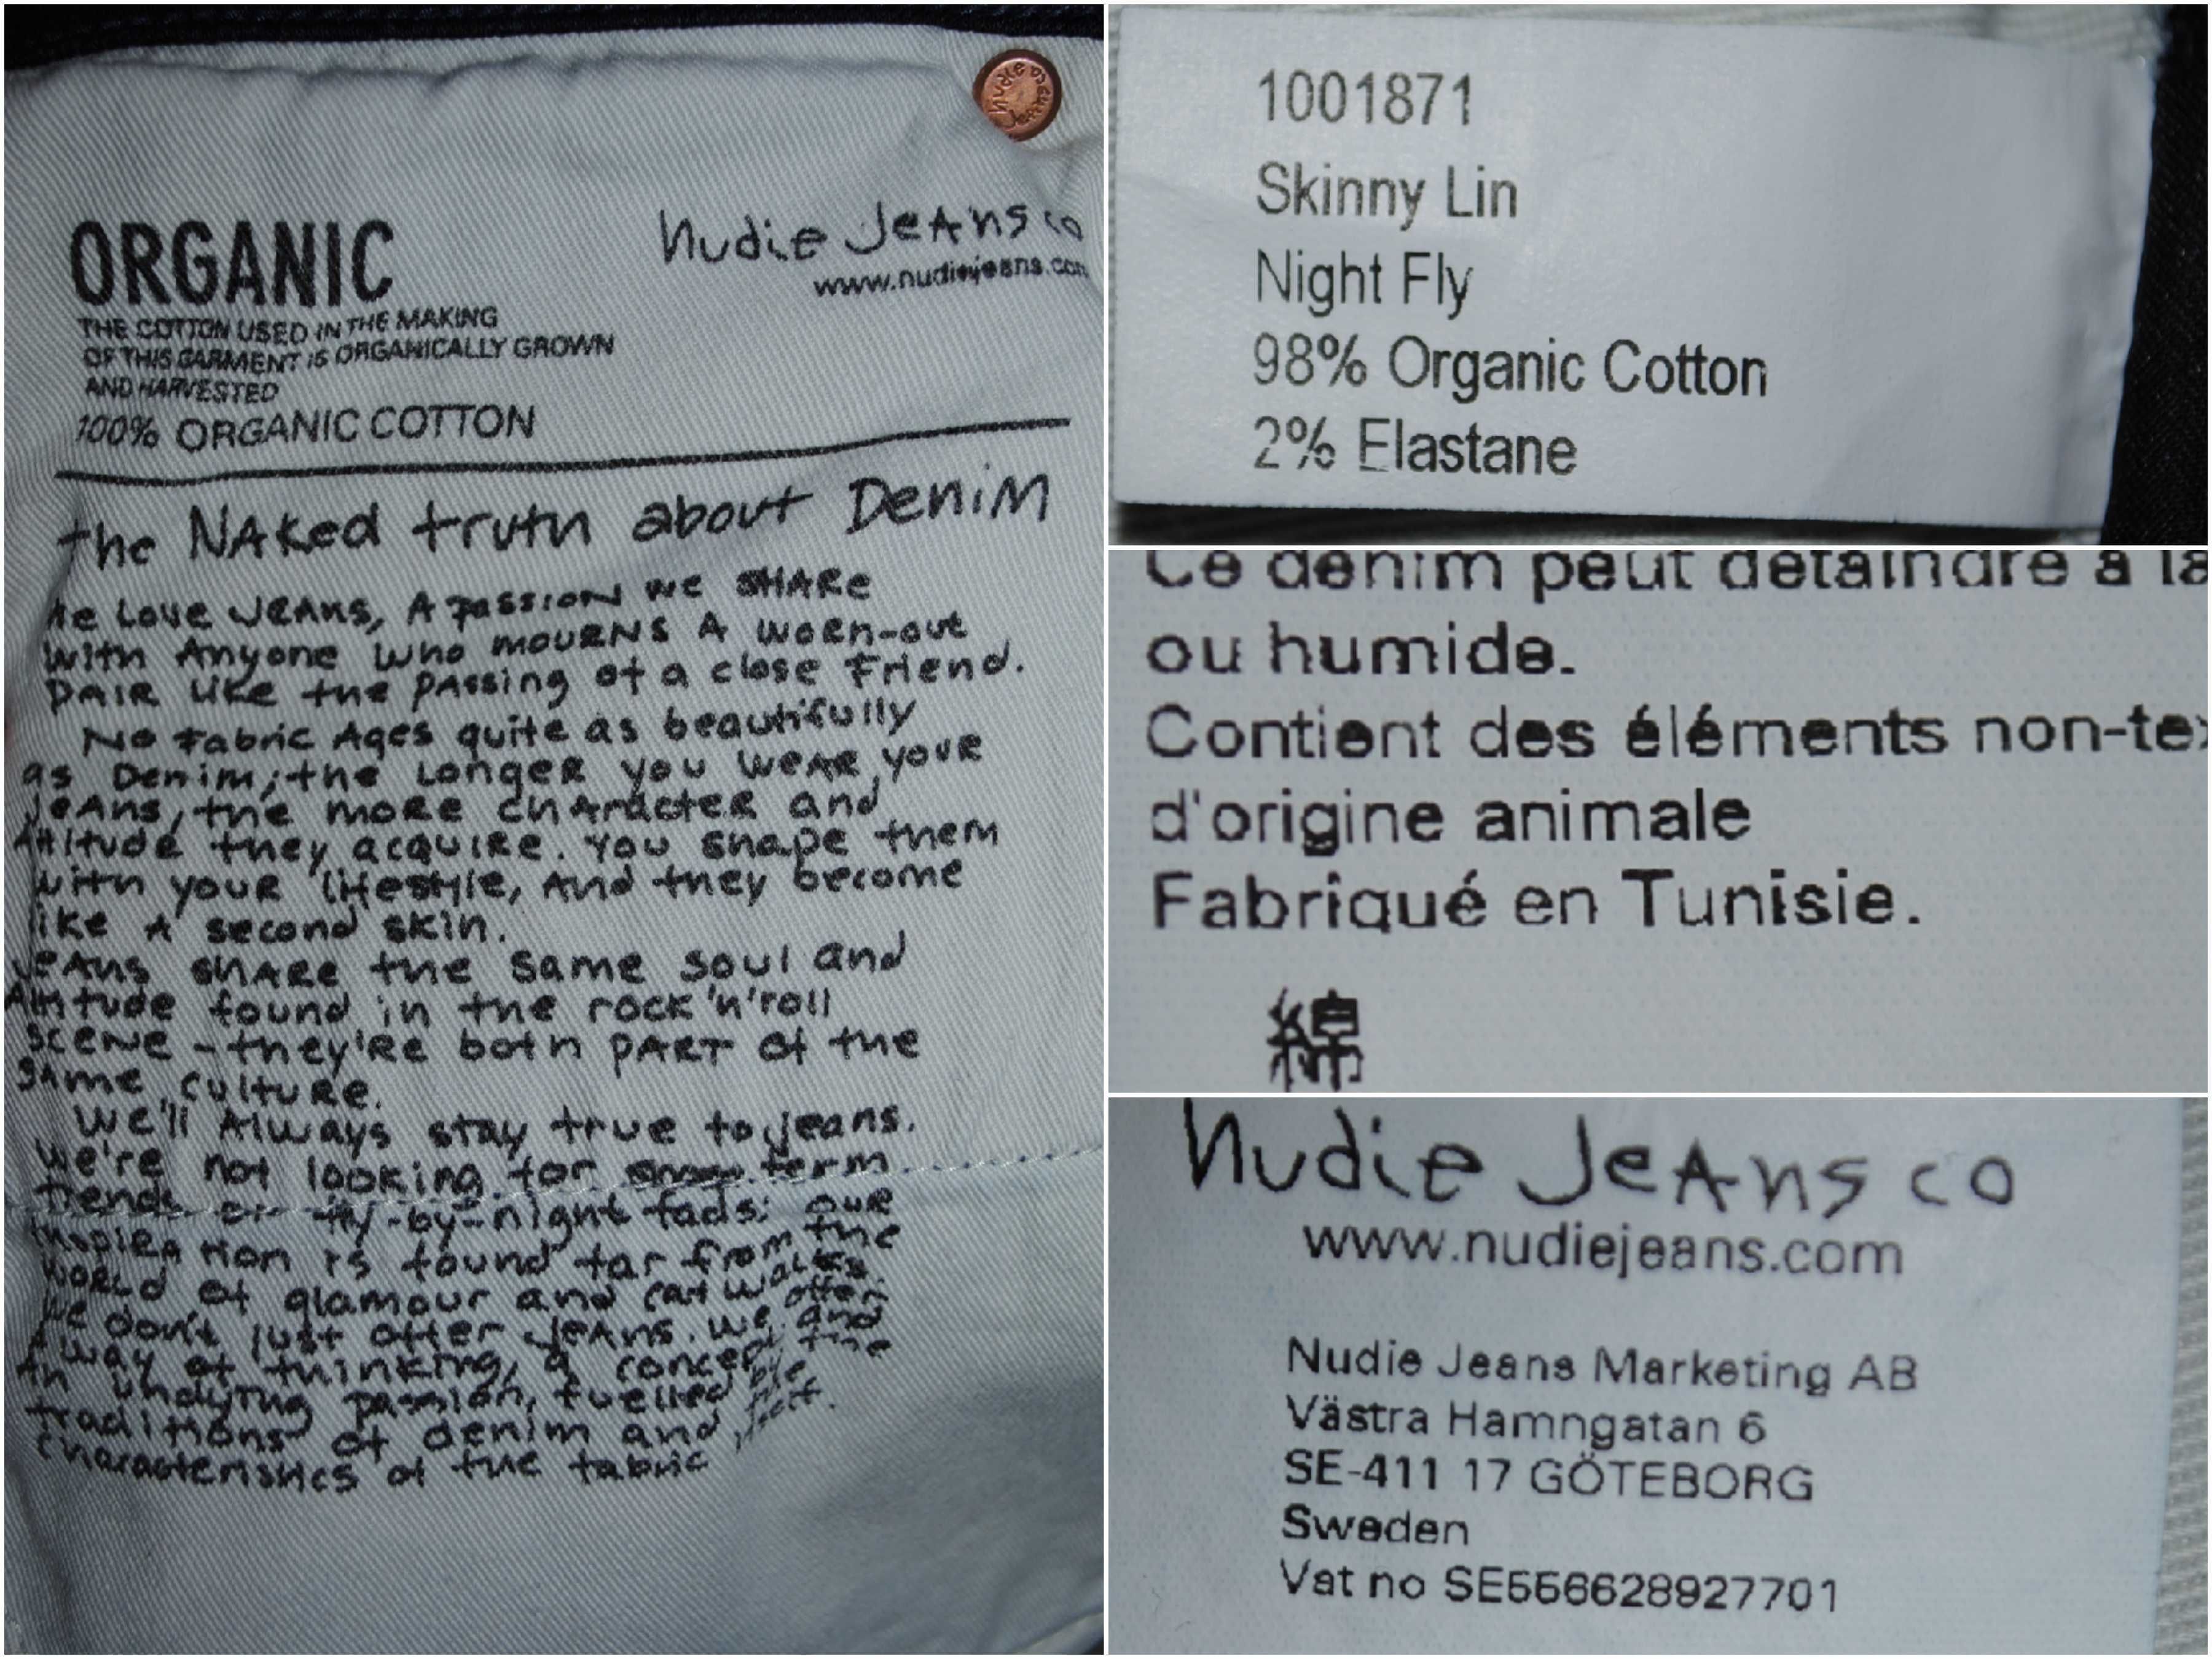 nudie Jeans
ORGANIC
THE COTTON USED IN THE MAKING
OF THIS GARMENT IS ORGANICALLY GROWN
AND HARVESTED
100% ORGANIC COTTON
nudie Jeans co
www.nudiejeans.com
the Naked truth about Denim
We Love Jeans, A passion we SHARe
with Anyone who mourns A worn-out
pair like the passing of a close Friend.
No Fabric Ages quite as beautifully
as Denim; the Longer you wear your
Jeans, the more character and
Attitude they acquire. You shape them
with your lifestyle, and they become
like A second skin.
Jeans share the same soul and
Attitude found in the rock 'n' roll
scene - they're both part of the
same culture.
We'll Always stay true to jeans.
We're not looking for term
trends or fly-by-night fads; our
inspiration is found far from the
world of glamour and cat walks.
We don't just offer Jeans. we offer
A way of thinking, a concept and
An undying passion, fuelled the
traditions of denim and
characteristics of the fabric itself.
1001871
Skinny Lin
Night Fly
98% Organic Cotton
2% Elastane
Ce denim peut detaindre a la
ou humide.
Contient des éléments non-te
d'origine animale
Fabriqué en Tunisie.
綿
nudie Jeans co
www.nudiejeans.com
Nudie Jeans Marketing AB
Västra Hamngatan 6
SE-411 17 GÖTEBORG
Sweden
Vat no SE556628927701